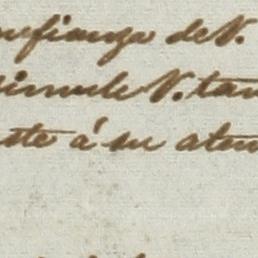 onfianza de V.
simule V. tan
ste á su aten